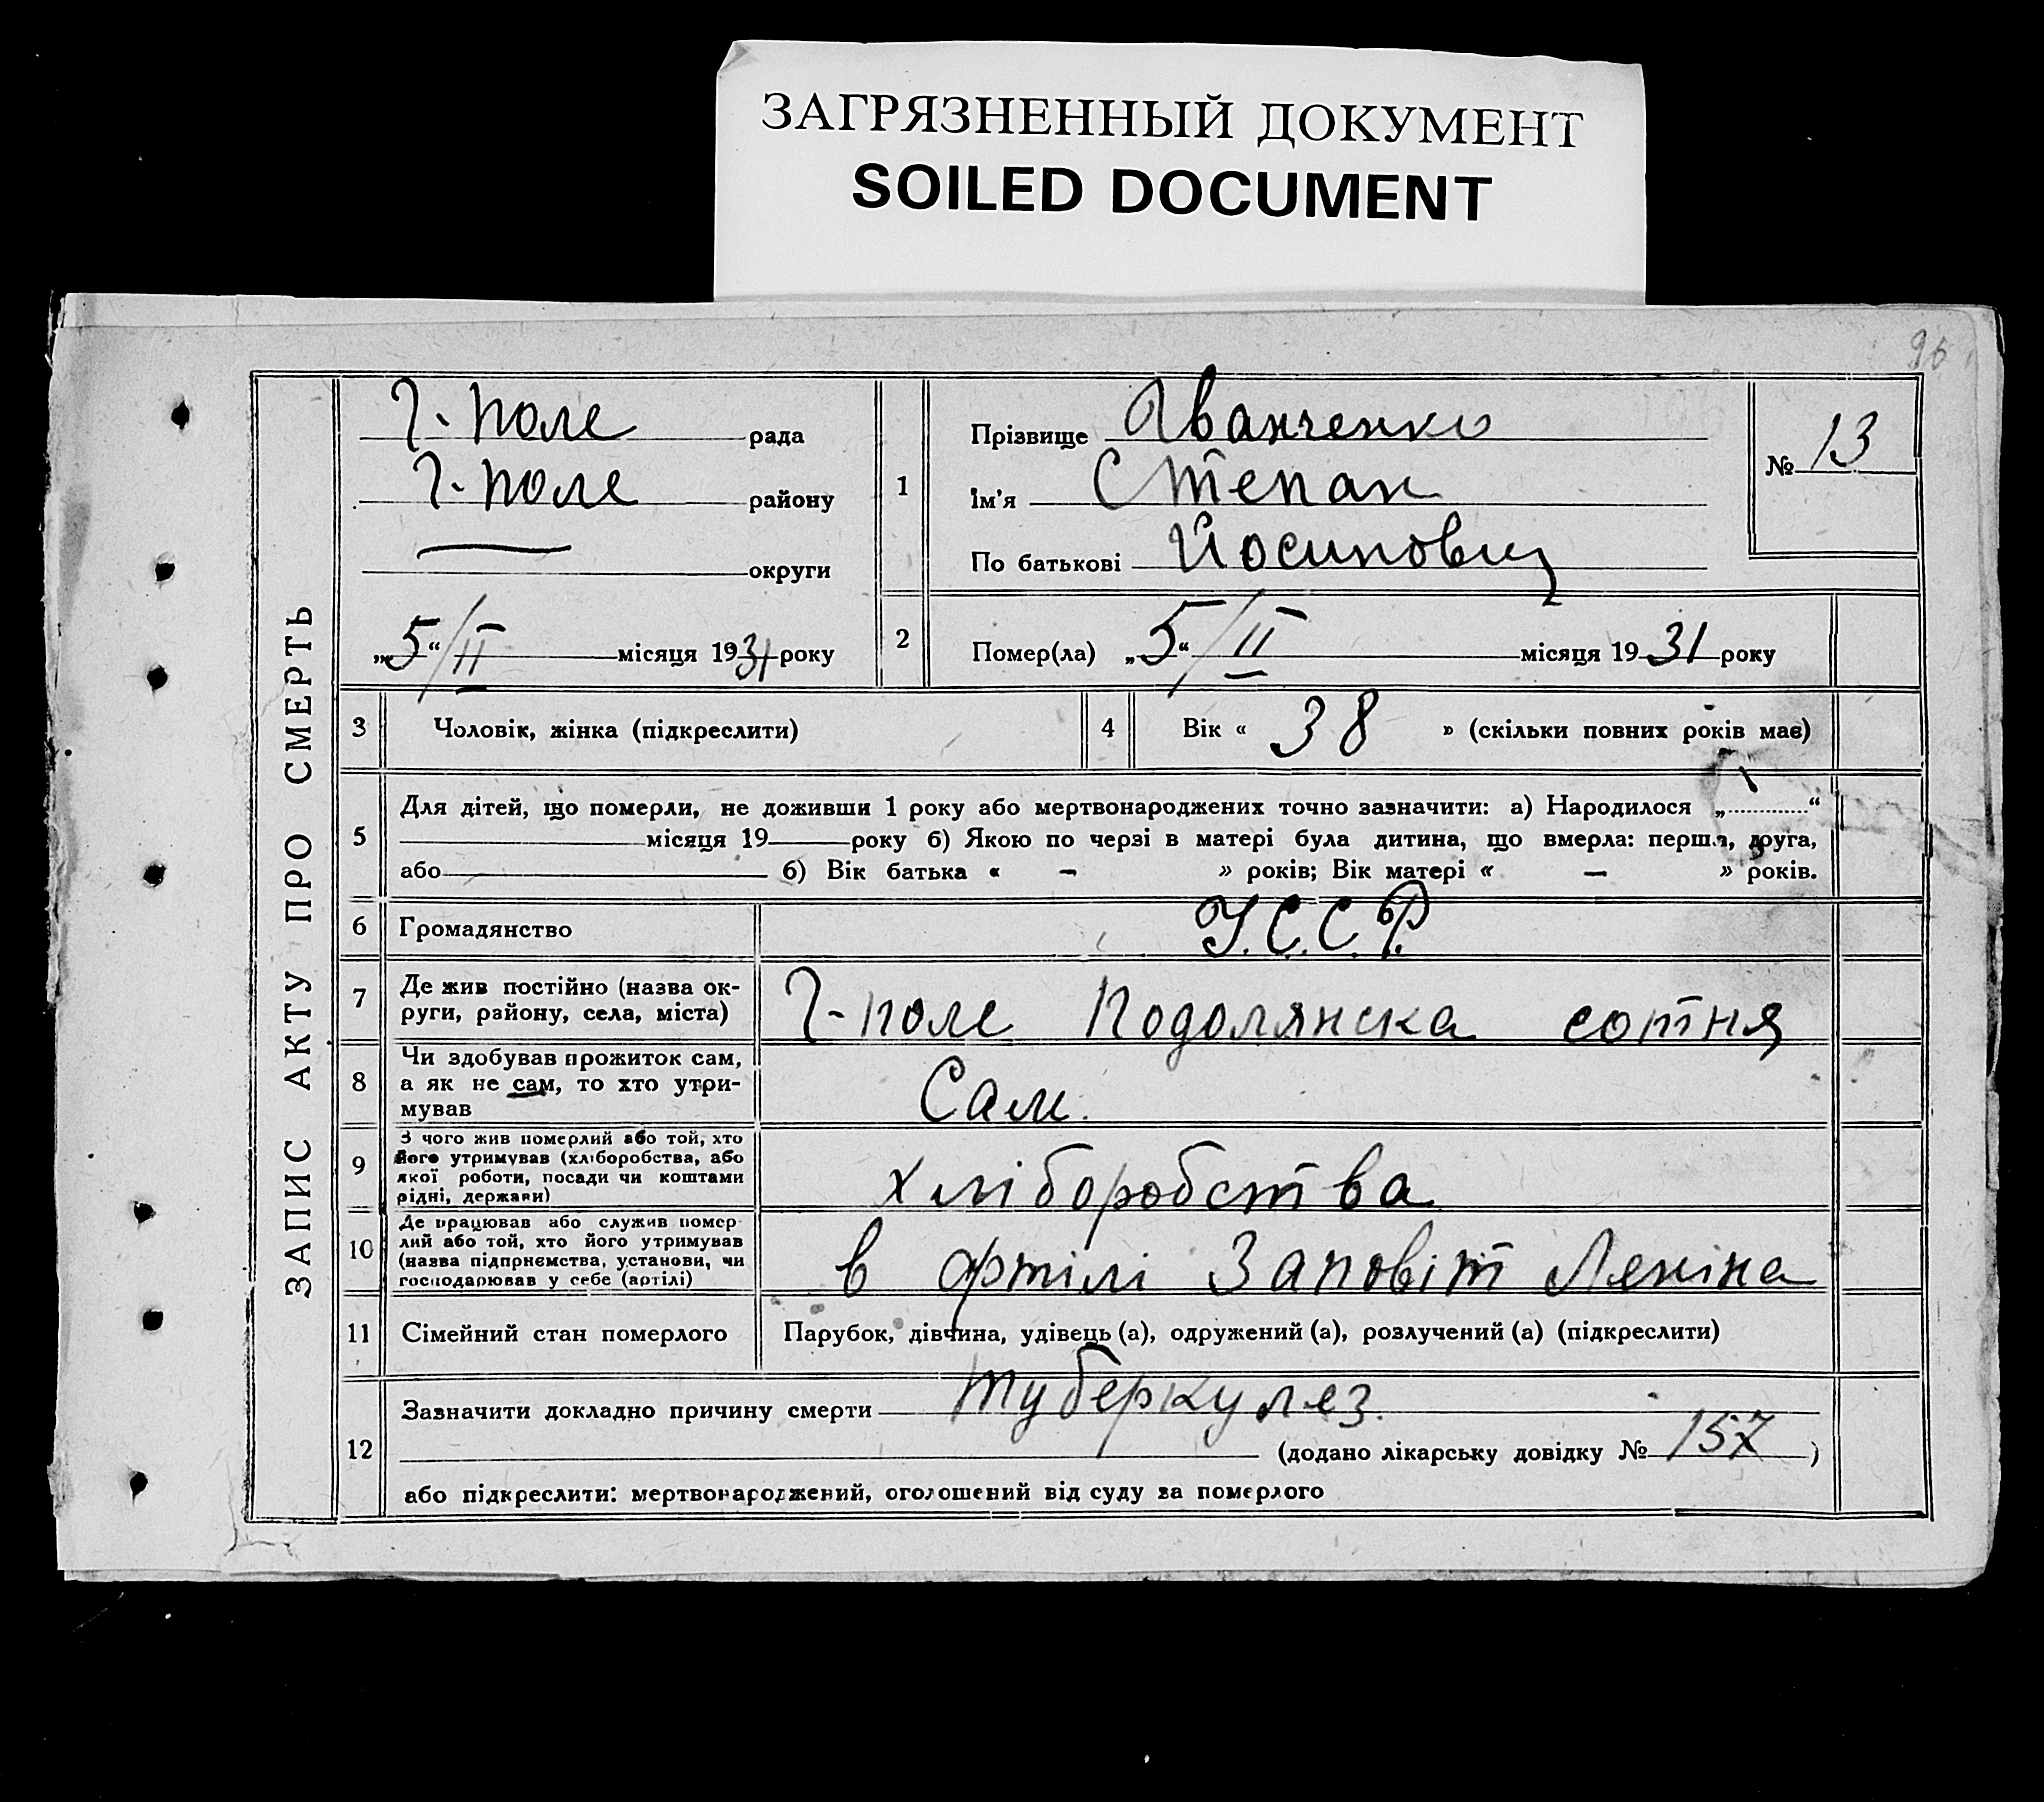 ЗАГРЯЗНЕННЫЙ ДОКУМЕНТ
SOILED DOCUMENT
96
ЗАПИС АКТУ ПРО СМЕРТЬ
Г-поле рада
Г-поле району
округи
„5“/II місяця 1931 року
1
Прізвище Иванченко
Ім'я Степан
По батькові Йосипович
№ 13
2 Помер(ла) „5“/II місяця 1931 року
3 Чоловік, жінка (підкреслити)
4 Вік « 38 » (скільки повних років має)
5 Для дітей, що померли, не доживши 1 року або мертвонароджених точно зазначити: а) Народилося „............“
місяця 19 року б) Якою по черзі в матері була дитина, що вмерла: перша, друга,
або б) Вік батька « – » років; Вік матері « – » років.
6 Громадянство У.С.С.Р.
7 Де жив постійно (назва ок-
руги, району, села, міста)
Г-поле Подолянска сотня
8 Чи здобував прожиток сам,
а як не сам, то хто утри-
мував
Сам.
9 З чого жив померлий або той, хто
його утримував (хліборобства, або
якої роботи, посади чи коштами
рідні, держави)
хліборобства
10 Де працював або служив помер-
лий або той, хто його утримував
(назва підприємства, установи, чи
господарював у себе (артілі)
в артілі Заповіт Леніна
11 Сімейний стан померлого Парубок, дівчина, удівець (а), одружений (а), розлучений (а) (підкреслити)
12 Зазначити докладно причину смерти туберкулез.
(додано лікарську довідку № 157)
або підкреслити: мертвонароджений, оголошений від суду за померлого